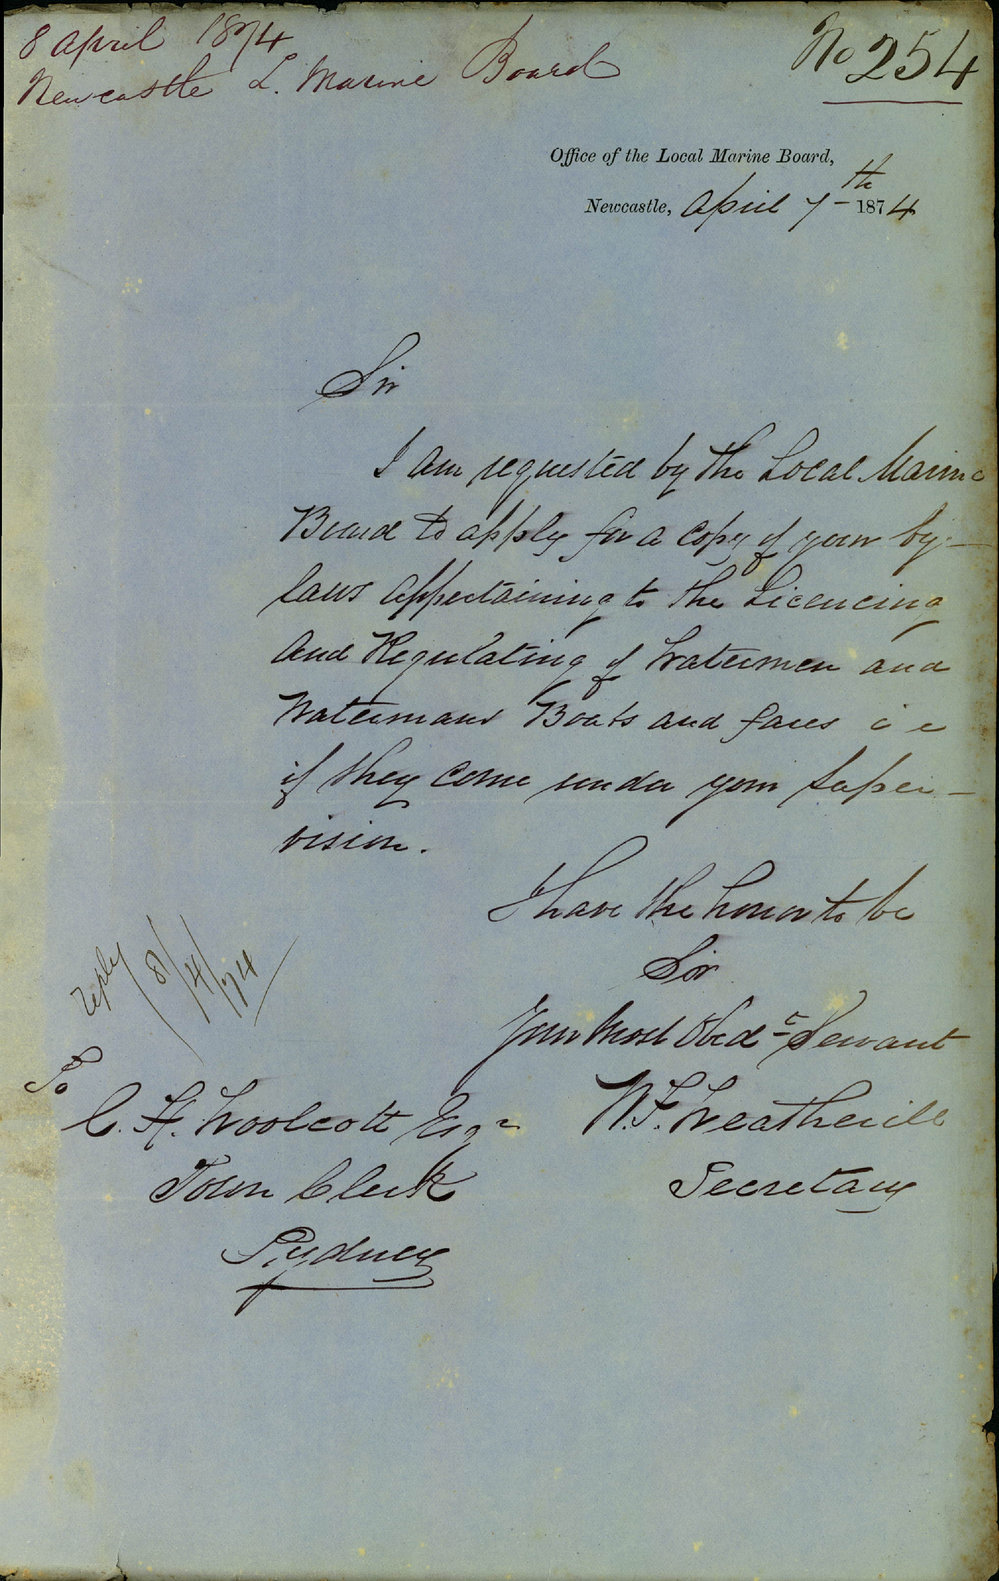 8 April 1874
Newcastle L. Marine Board
No 254
Office of the Local Marine Board,
Newcastle, April 7th 1874
Sir
I am requested by the Local Marine
Board to apply for a copy of your by-
laws appertaining to the Licencing
and Regulating of Watermen and
Watermans Boats and fares i e
if they come under your super-
vision.
I have the honor to be
Sir
Your Most Obedt Servant
W. F. Weatherill
Secretary
reply 8/4/74
To
C. H. Woolcott Esqr
Town Clerk
Sydney